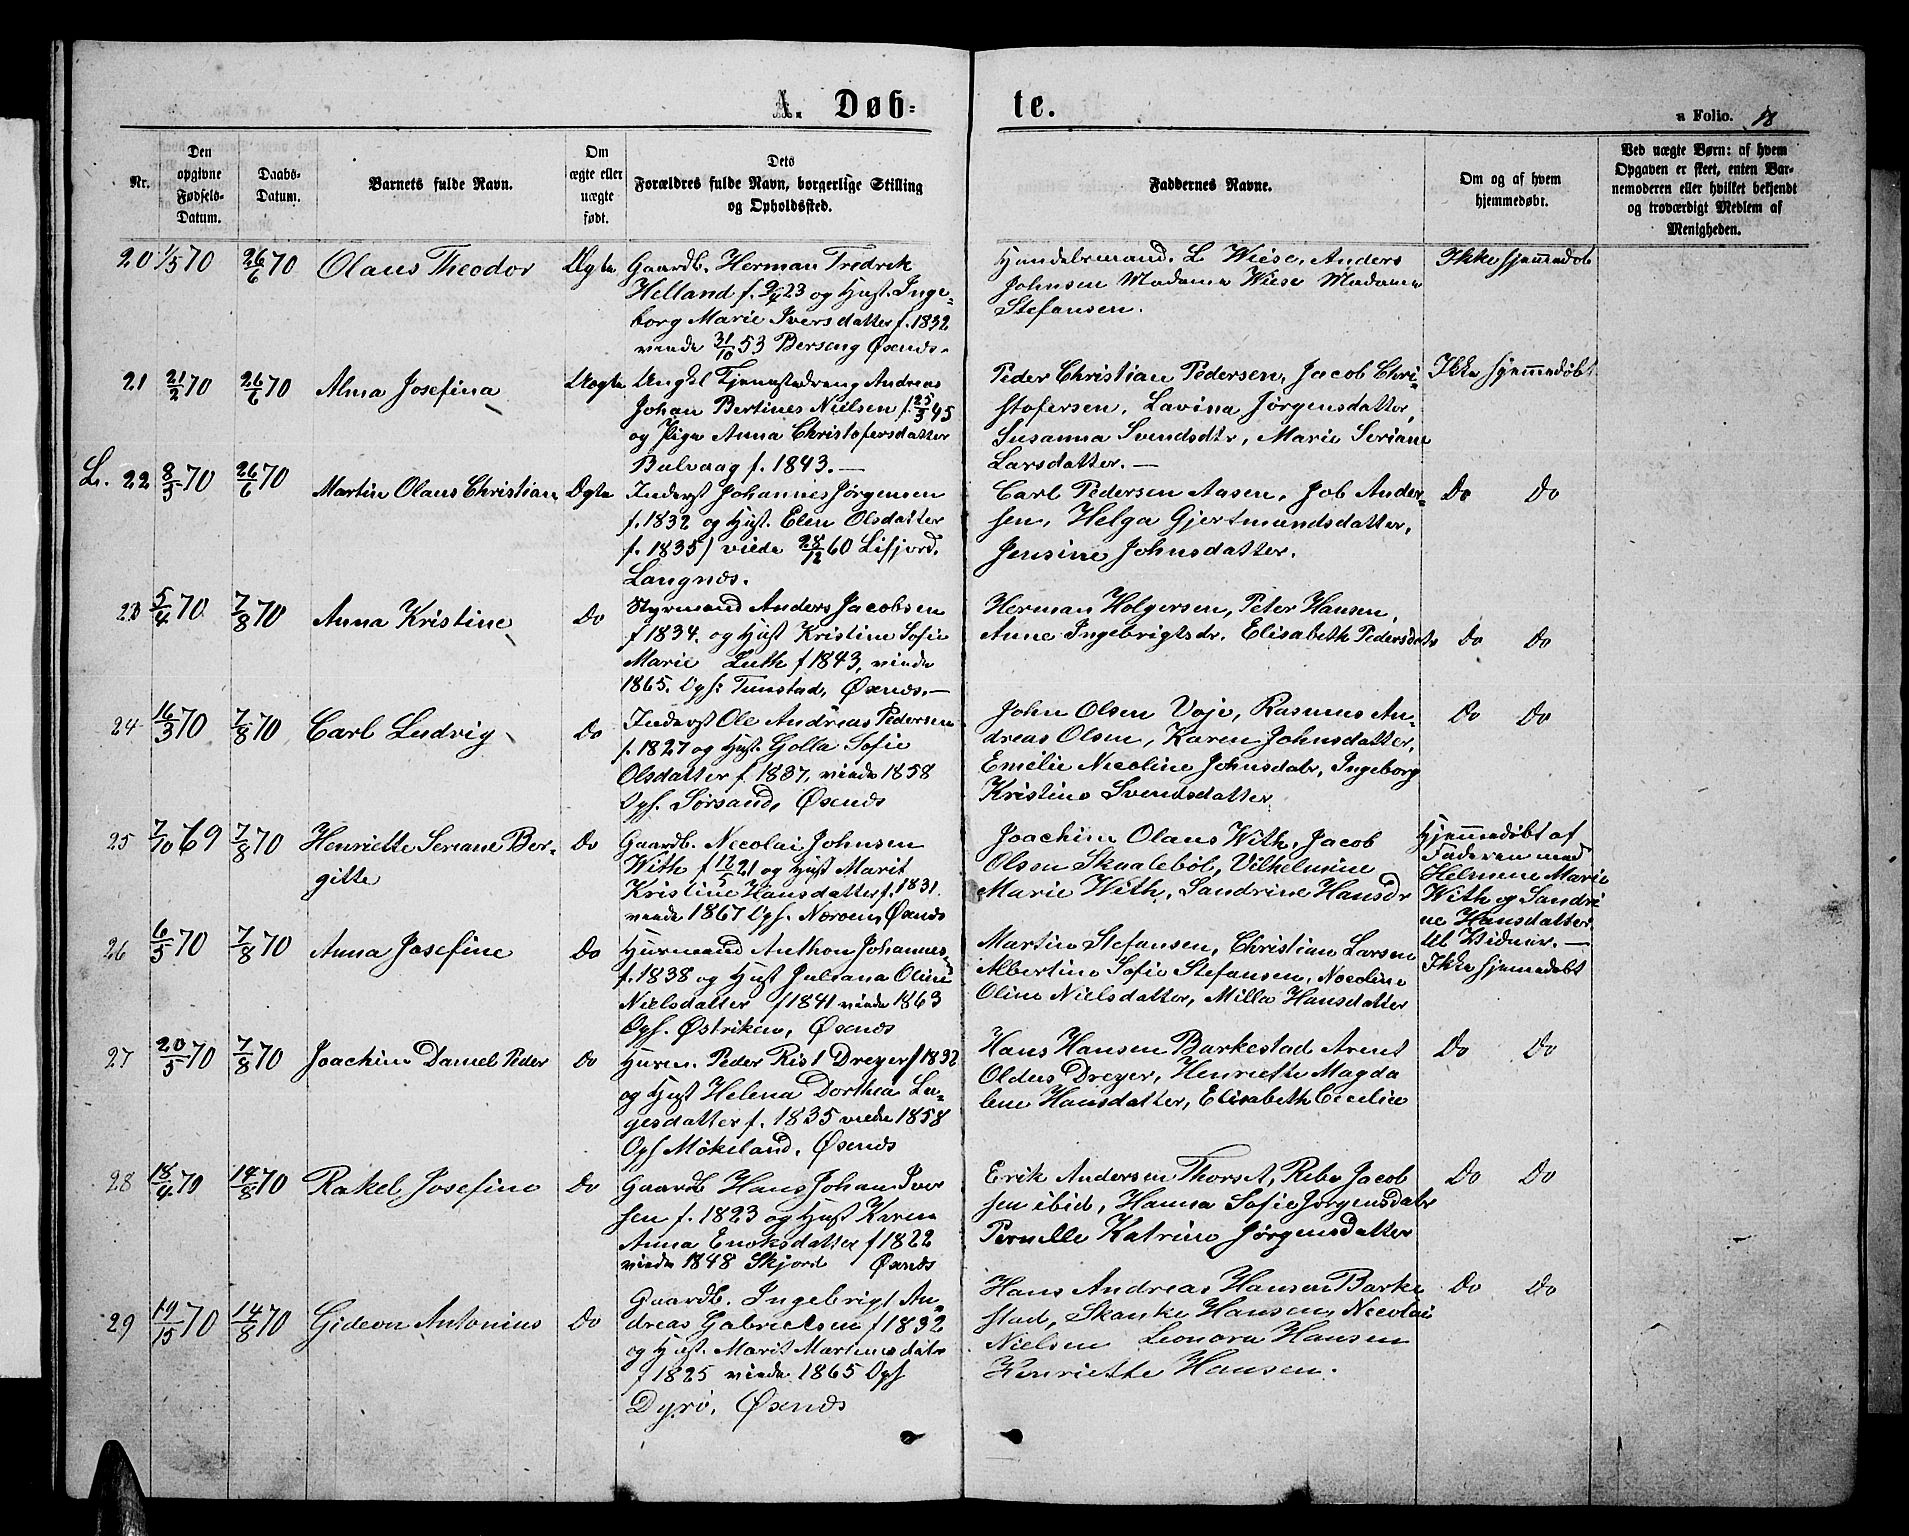 A. Døb-
te.
a Folio. 18
Nr.
Den opgivne Fødsels-Datum.
Daabs-Datum.
Barnets fulde Navn.
Om ægte eller uægte født.
Dets Forældres fulde Navn, borgerlige Stilling og Opholdssted.
Faddernes Navne.
Om og af hvem hjemmedøbt.
Ved uægte Børn: af hvem Opgaven er skeet, enten Barnemoderen eller hvilket bekjendt og troværdigt Medlem af Menigheden.
20 1/5 70 26/6 70 Olaus Theodor Ægte
Gaardb. Herman Fredrik
Helland f. 9/6 23 og Hust. Inge-
borg Marie Iversdatter f. 1832
viede 31/10 53 Bersang Øxnæs.
Handelsmand. L Wiese, Anders
Johnsen Madame Wiese Madame
Stefansen.
Ikke hjemmedøb
21 21/2 70 26/6 70 Alma Josefina Uægte
Ungkl Tjenestedreng Andreas
Johan Bertines Nielsen f. 25/3 45
og Pige Anna Christofersdatter
Bulvaag f. 1843. —
Peder Christian Pedersen, Jacob Chri-
stofersen, Lavina Jørgensdatter,
Susanna Svendsdtr, Marie Seriane
Larsdatter. —
Ikke hjemmedøbt
L. 22 8/3 70 26/6 70 Martin Olaus Christian Ægte
Inderst Johannes Jørgensen
f. 1832 og Hust. Elen Olsdatter
f. 1835) viede 28/12 60 Lifjord,
Langnæs.
Carl Pedersen Aasen, Job Ander-
sen, Helga Gjertmundsdatter,
Jensine Johnsdatter.
Do Do
23 5/4 70 7/8 70 Anna Kristine Do
Styrmand Anders Jacobsen
f 1834. og Hust Kristine Sofie
Marie Luth f 1843, viede
1865. Oph: Tunstad, Øxnæs. —
Herman Holgersen, Peter Hansen,
Anne Ingebrigtsdr. Elisabeth Pedersdatr
Do Do
24 16/3 70 7/8 70 Carl Ludvig Do
Inderst Ole Andreas Pedersen
f. 1827 og Hust. Golla Sofie
Olsdatter f 1837, viede 1858
Oph. Sørsand, Øxnæs
John Olsen Voje, Rasmus An-
dreas Olsen, Karen Johnsdatter,
Emelie Nicoline Johnsdatr, Ingeborg
Kristine Svendsdatter
Do Do
25 7/10 69 7/8 70 Henriette Seriane Ber- Do
gitte
Gaardb. Necolai Johnsen
With f 12/5 21 og Hust Marit
Kristine Hansdatter f. 1831.
viede 1867 Oph. Nørven, Øxnæs
Joachim Olaus With, Jacob
Olsen Skaalebøl, Vilhelmine
Marie With, Sandrine Hansdr
Hjemmedøbt af
Faderen med
Helmine Marie
With og Sandri
ne Hansdatter
til Vidner. —
26 6/5 70 7/8 70 Anna Josefine Do
Husmand Anthon Johannes-
f. 1838 og Hust Juliana Oline
Nielsdatter f 1841 viede 1863
Oph. Østriken, Øxnæs
Martin Stefansen, Christian Larsen
Albertine Sofie Stefansen, Nicoline
Oline Nielsdatter, Milla Hansdatter
Ikke hjemmedøbt
27 20/5 70 7/8 70 Joachim Daniel Peder Do
Husm. Peder Rist Dreyer f 1832
og Hust Helena Dorthea Lu-
gesdatter f. 1835 viede 1858
Oph Møkeland, Øxnæs
Hans Hansen Barkestad Arent
Oldeus Dreyer, Henriette Magda
lene Hansdatter, Elisabeth Cecilie
Do Do
28 18/4 70 14/8 70 Rakel Josefine Do
Gaardb Hans Johan Iver
sen f. 1823 og Hust Karen
Anna Enoksdatter f 1822
viede 1848 Skjord Øxnæs
Erik Andersen Thorset, Ribe Jacob
sen ibid, Hanna Sofie Jørgensdatr
Pernelle Katrine Jørgensdatter
Do Do
29 19/15 70 14/8 70 Gideon Antonius Do
Gaardb. Ingebrigt An-
dreas Gabrielsen f 1832
og Hust. Marit Martinsdatr
f 1825 viede 1865 Oph
Dyrø, Øxnæs
Hans Andreas Hansen Barke
stad, Skanke Hansen, Necolai
Nielsen Leonora Hansen
Henriette Hansen.
Do Do